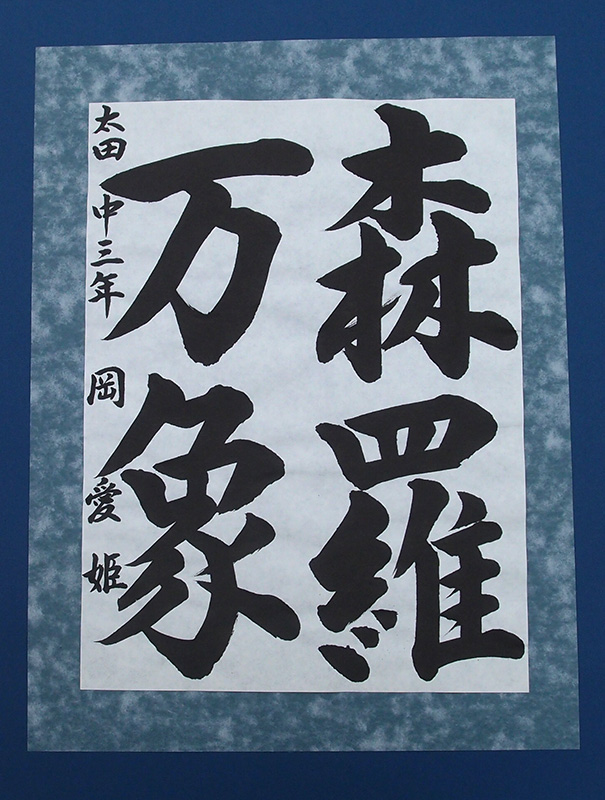 森羅
万象
太田 中三年 岡 愛 姫